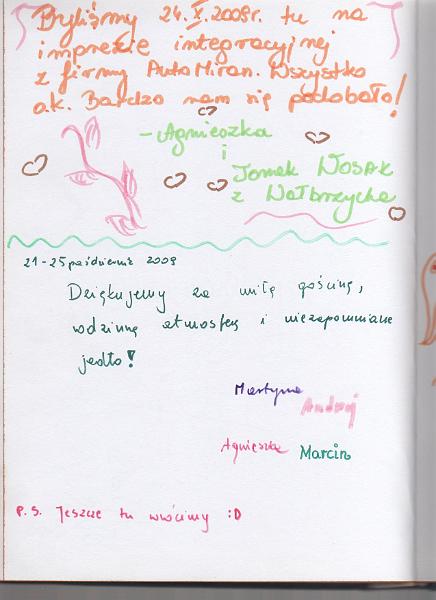 Byliśmy 24.X.2009r. tu na
imprezie integracyjnej
z firmy AutoMiran. Wszystko
ok. Bardzo nam się podobało!
- Agnieszka
i
Tomek Nosak
z Wałbrzycha
21-25 październik 2009
Dziękujemy za miłą gościnę,
rodzinną atmosferę i niezapomniane
jedło!
Martyna
Andrzej
Agnieszka
Marcin
P.S. Jeszcze tu wrócimy :D